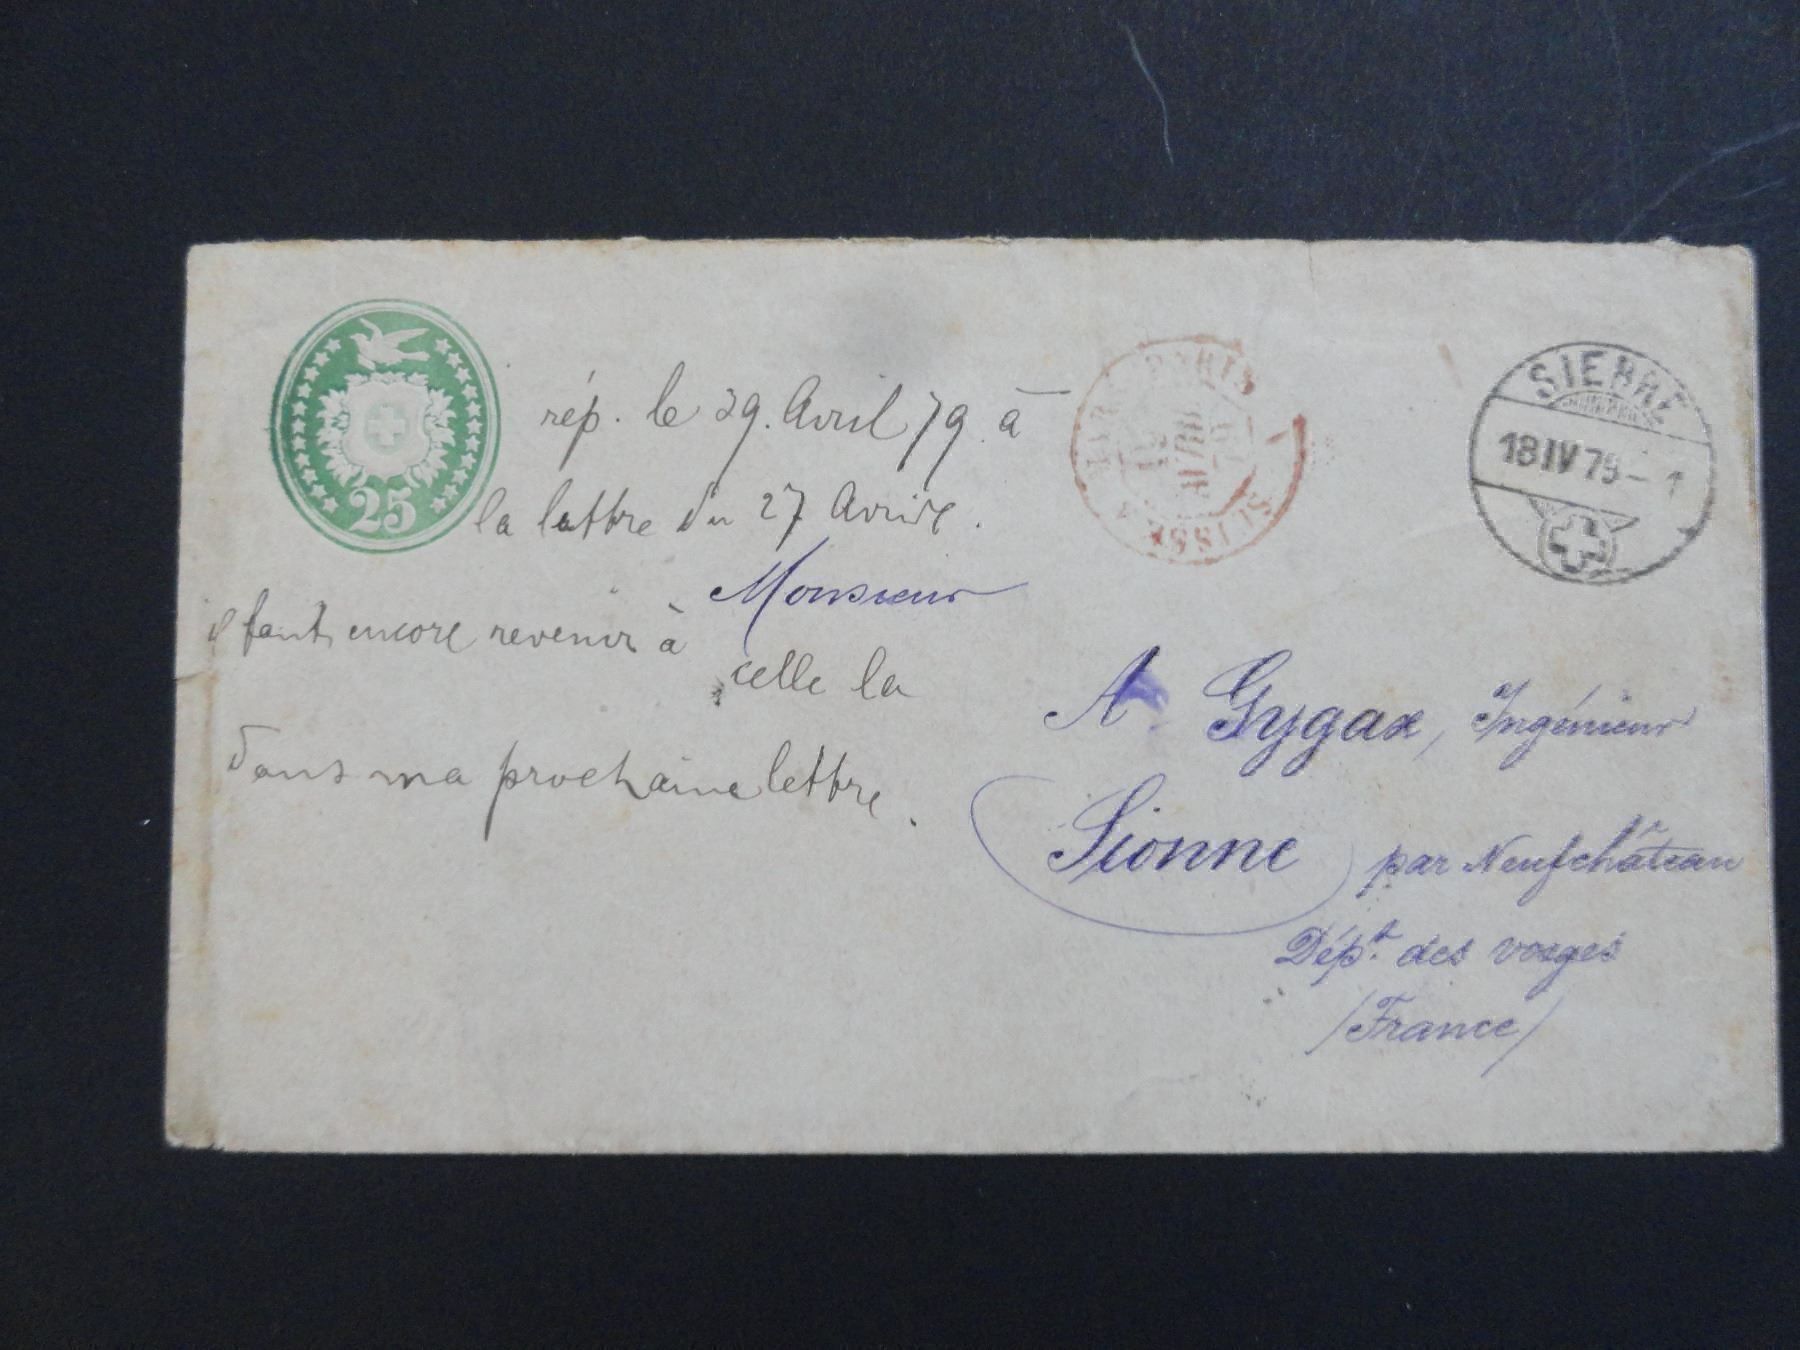 25
rép. le 29. Avril 79. à
la lettre du 27 Avril.
il faut encore revenir à
celle la
dans ma prochaine lettre.
PARIS
SUISSE
SIERRE
18 IV 79 - 1
Monsieur
A. Gygax, Ingénieur
Sionne par Neufchâteau
Dépt. des vosges
/France/